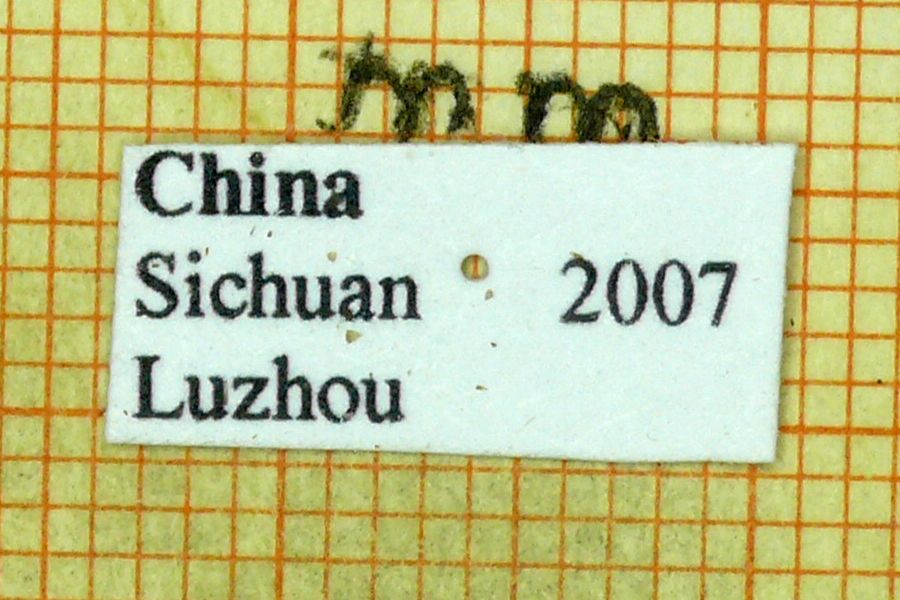 mm
China
Sichuan 2007
Luzhou